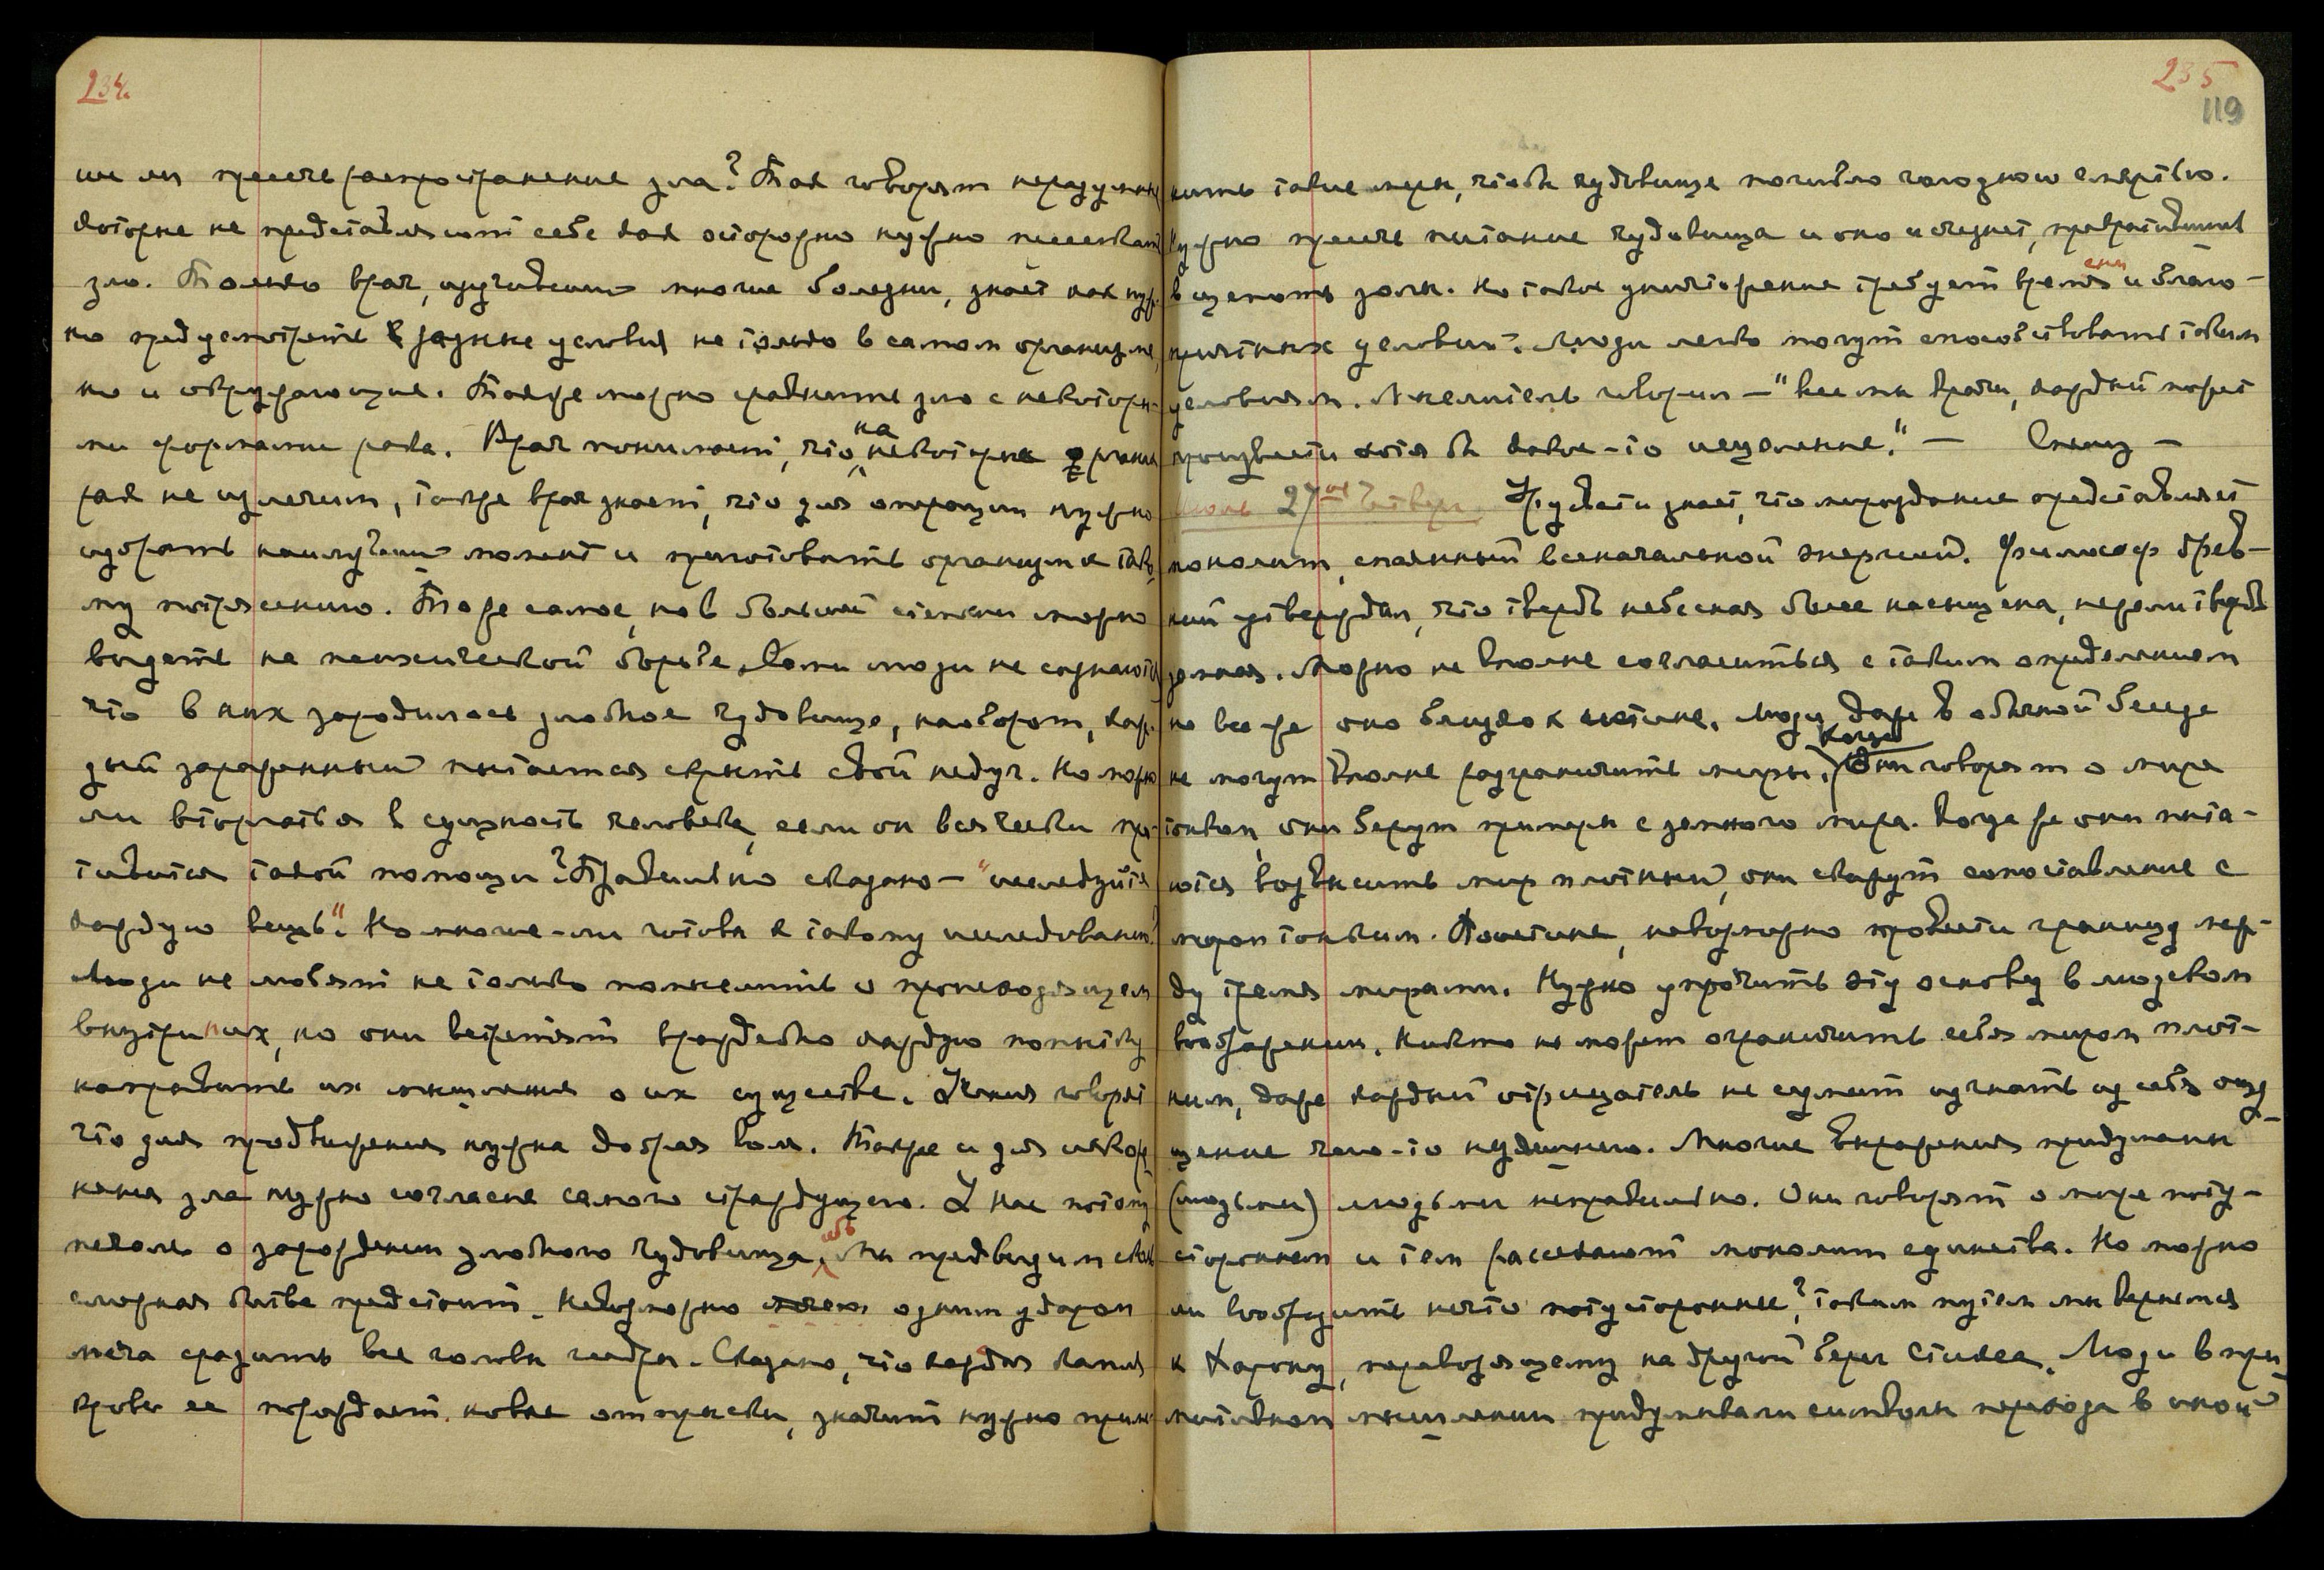 234.
ше ли пресечь распространение зла? Так говорят неразумные
которые не представляют себе как осторожно нужно пресекать
зло. Только врач, изучивший многие болезни, знает как нуж-
но предусмотреть разные условия не только в самом организме,
но и окружающие. Также можно сравнить зло с некоторы-
ми формами рака. Врач понимает, что на некоторые органы
рак не излечим, также врач знает, что для операции нужно
избрать наилучший момент и приготовить организм к тако-
му потрясению. То же самое, но в большей степени можно
видеть на психической борьбе. Сами люди не сознают
что в них зародилось злобное чудовище, наоборот, каж-
дый зараженный пытается скрыть свой недуг. Но можно
ли вторгаться в сущность человека, если он всячески про-
тивится такой помощи? Правильно сказано — "исследуйте
каждую вещь". Но многие-ли готовы к такому исследованию?
Люди не любят не только помыслить о происходящем
внутри них, но они встречают враждебно каждую попытку
направить их мышление о их существе. Учения говорят
что для продвижения нужна добрая воля. Также и для искоре-
нения зла нужно согласие самого страждущего. У нас потому
печаль о зарождении злобного чудовища, ибо Мы предвидим как
сложная битва предстоит. Невозможно одним ударом
меча сразить все головы гидры. Сказано, что каждая капля
крови ее порождает новые отпрыски, значит нужно приме-
235
119
нить такие меры, чтобы чудовище погибло голодною смертью.
Нужно пресечь питание чудовища и оно исчезнет, превратившись
в щепоть золы. Но такое уничтожение требует времени и благо-
приятных условий. Люди легко могут способствовать таким
условиям. Мыслитель говорил — "все мы врачи, каждый может
произвести хотя бы какое-то исцеление." — Снегу —
Июль 27ое Четверг. Урусвати знает, что мироздание представляет
монолит, спаянный всеначальной энергией. Философ древ-
ний утверждал, что твердь небесная более насыщена, нежели твердь
земная. Можно не вполне согласиться с таким определением
но все-же оно близко к истине. Люди даже в обычной беседе
не могут вполне разграничить миры. Когда они говорят о мире
тонком, они берут примеры с земного мира. Когда же они пыта-
ются возвысить мир плотный, они скажут сопоставление с
миром тонким. Поистине, невозможно провести границу меж-
ду тремя мирами. Нужно упрочить эту основу в людском
воображении. Никто не может ограничить себя миром плот-
ным, даже каждый отрицатель не сумеет изгнать из себя ощу-
щение чего-то нездешнего. Многие выражения придуманы
(людьми) людьми неправильно. Они говорят о мире поту-
стороннем и тем рассекают монолит единства. Но можно
ли вообразить нечто потустороннее? Таким путем мы вернемся
к Харону, перевозящему на другой берег Стикса. Люди в при-
митивном мышлении придумывали символы перехода в иной